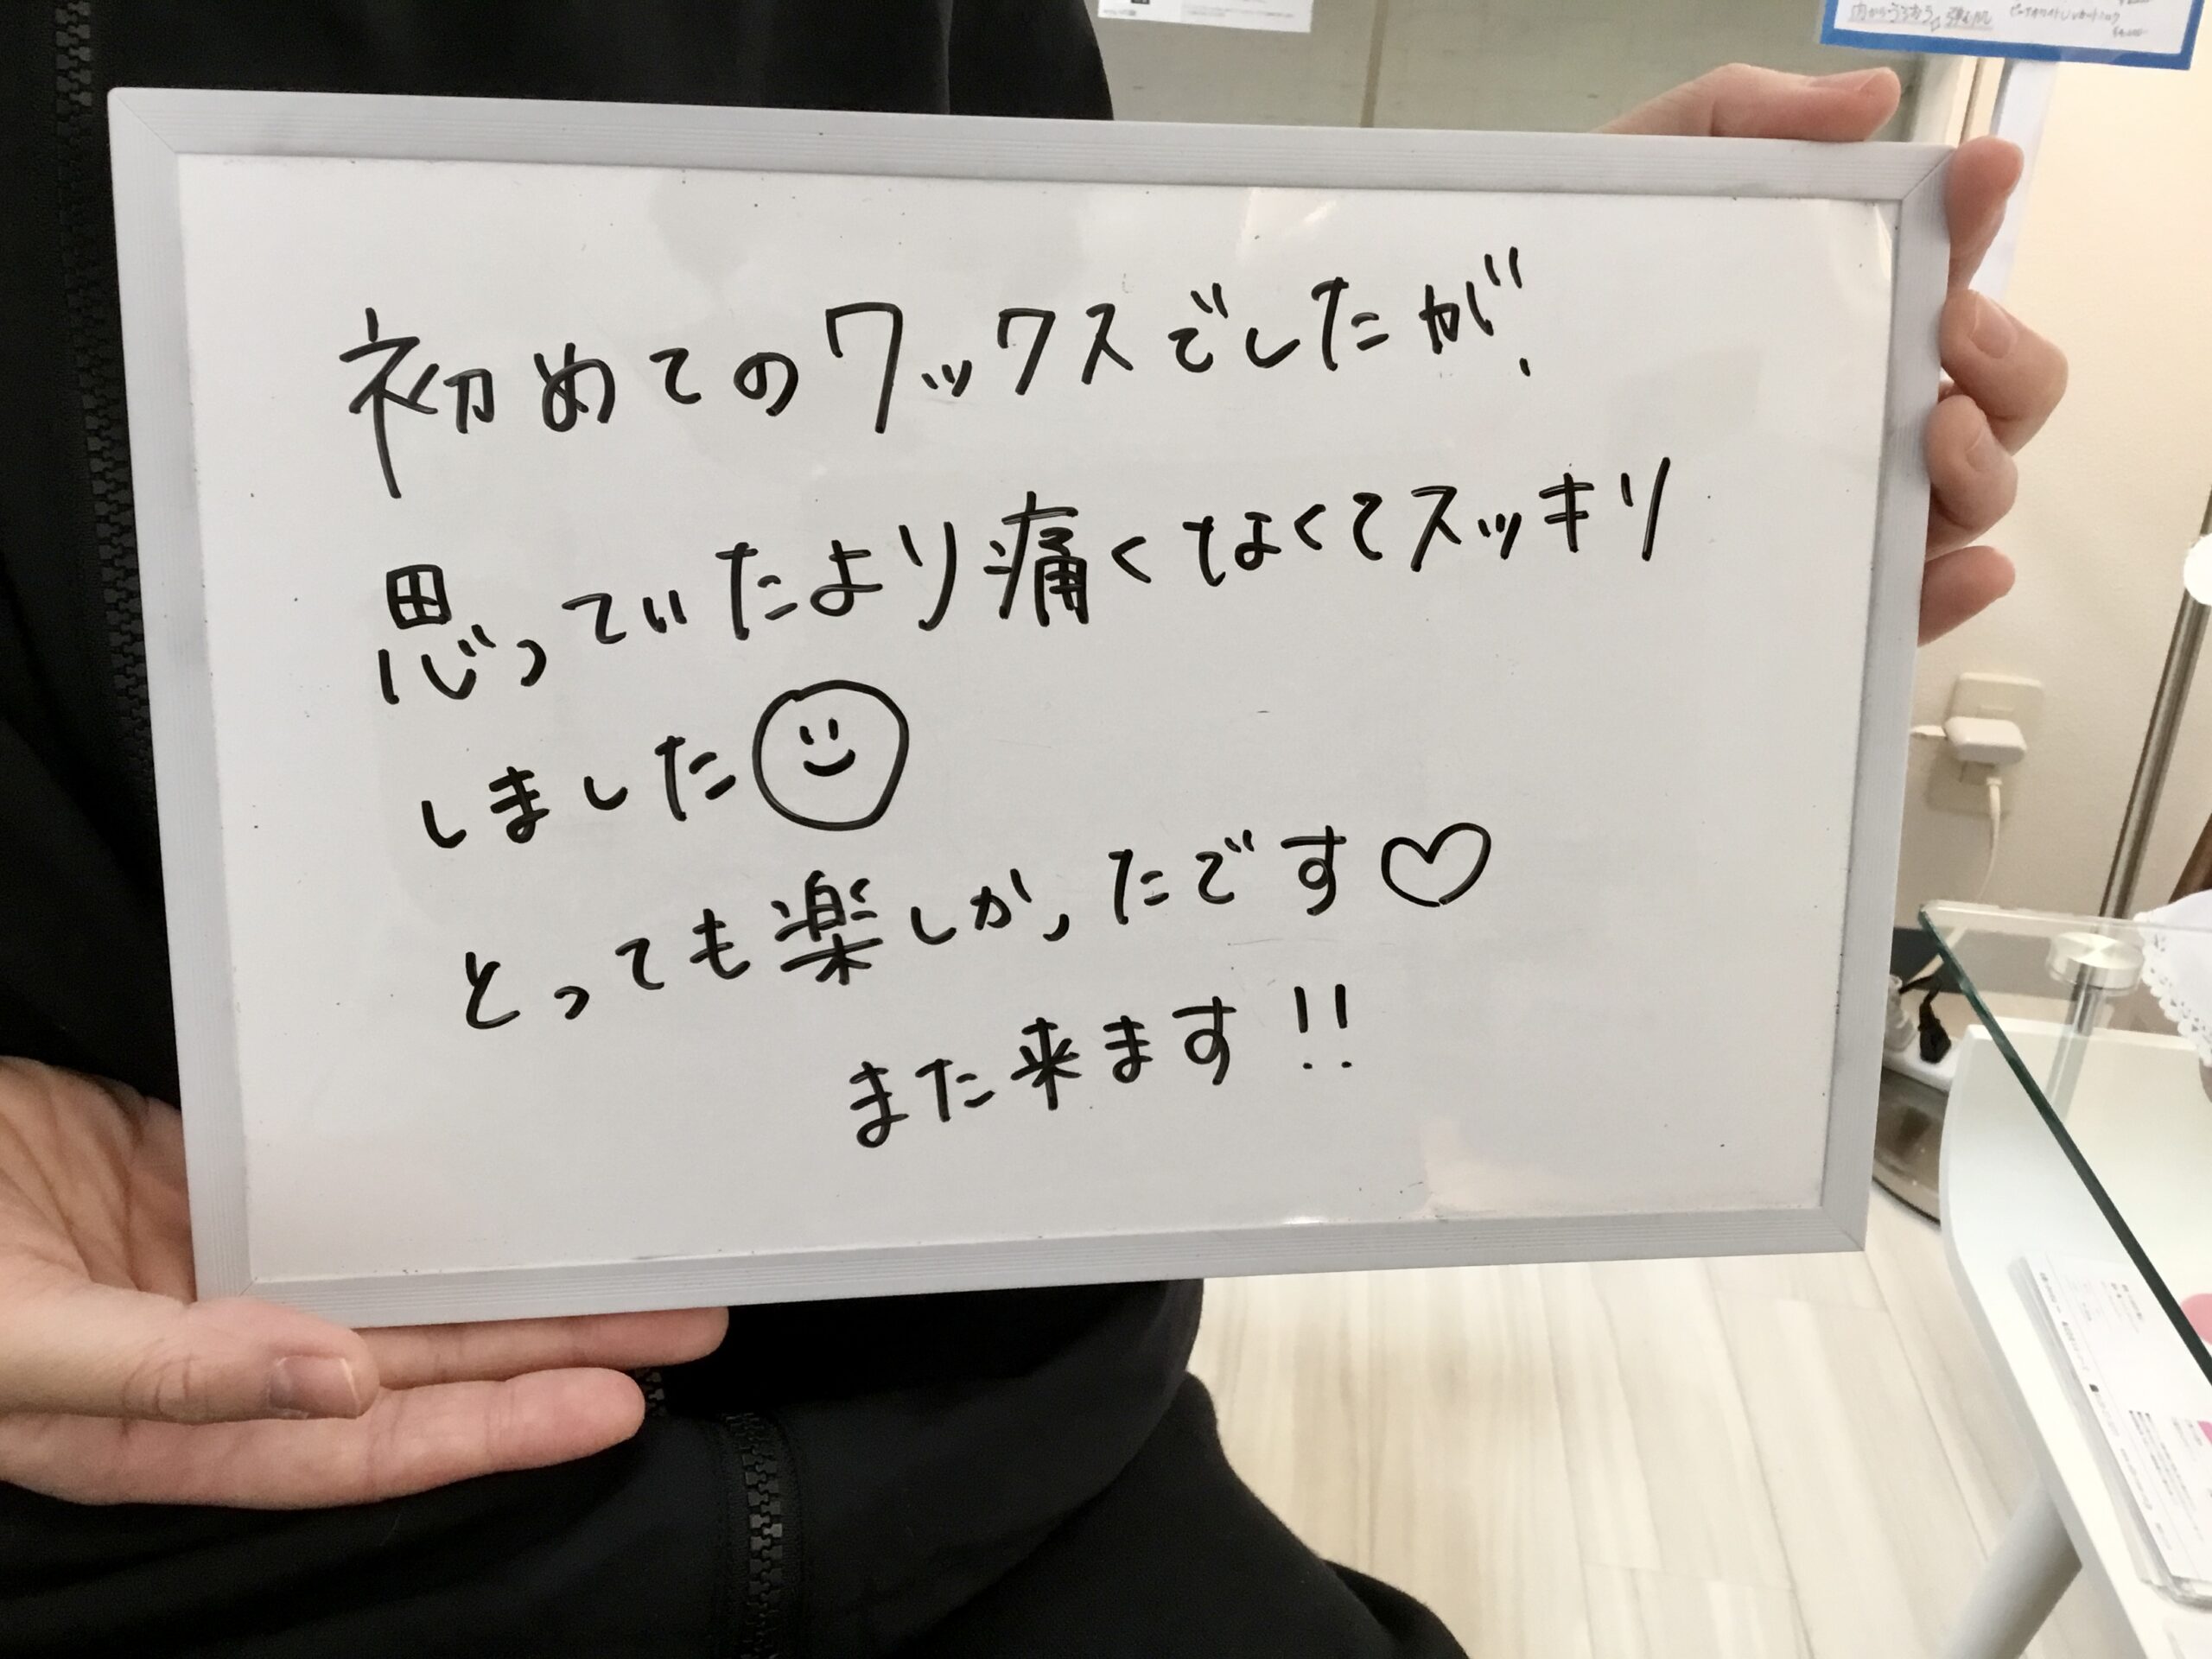 初めてのワックスでしたが、
思っていたより痛くなくてスッキリ
しました☺
とっても楽しかったです♡
また来ます!!